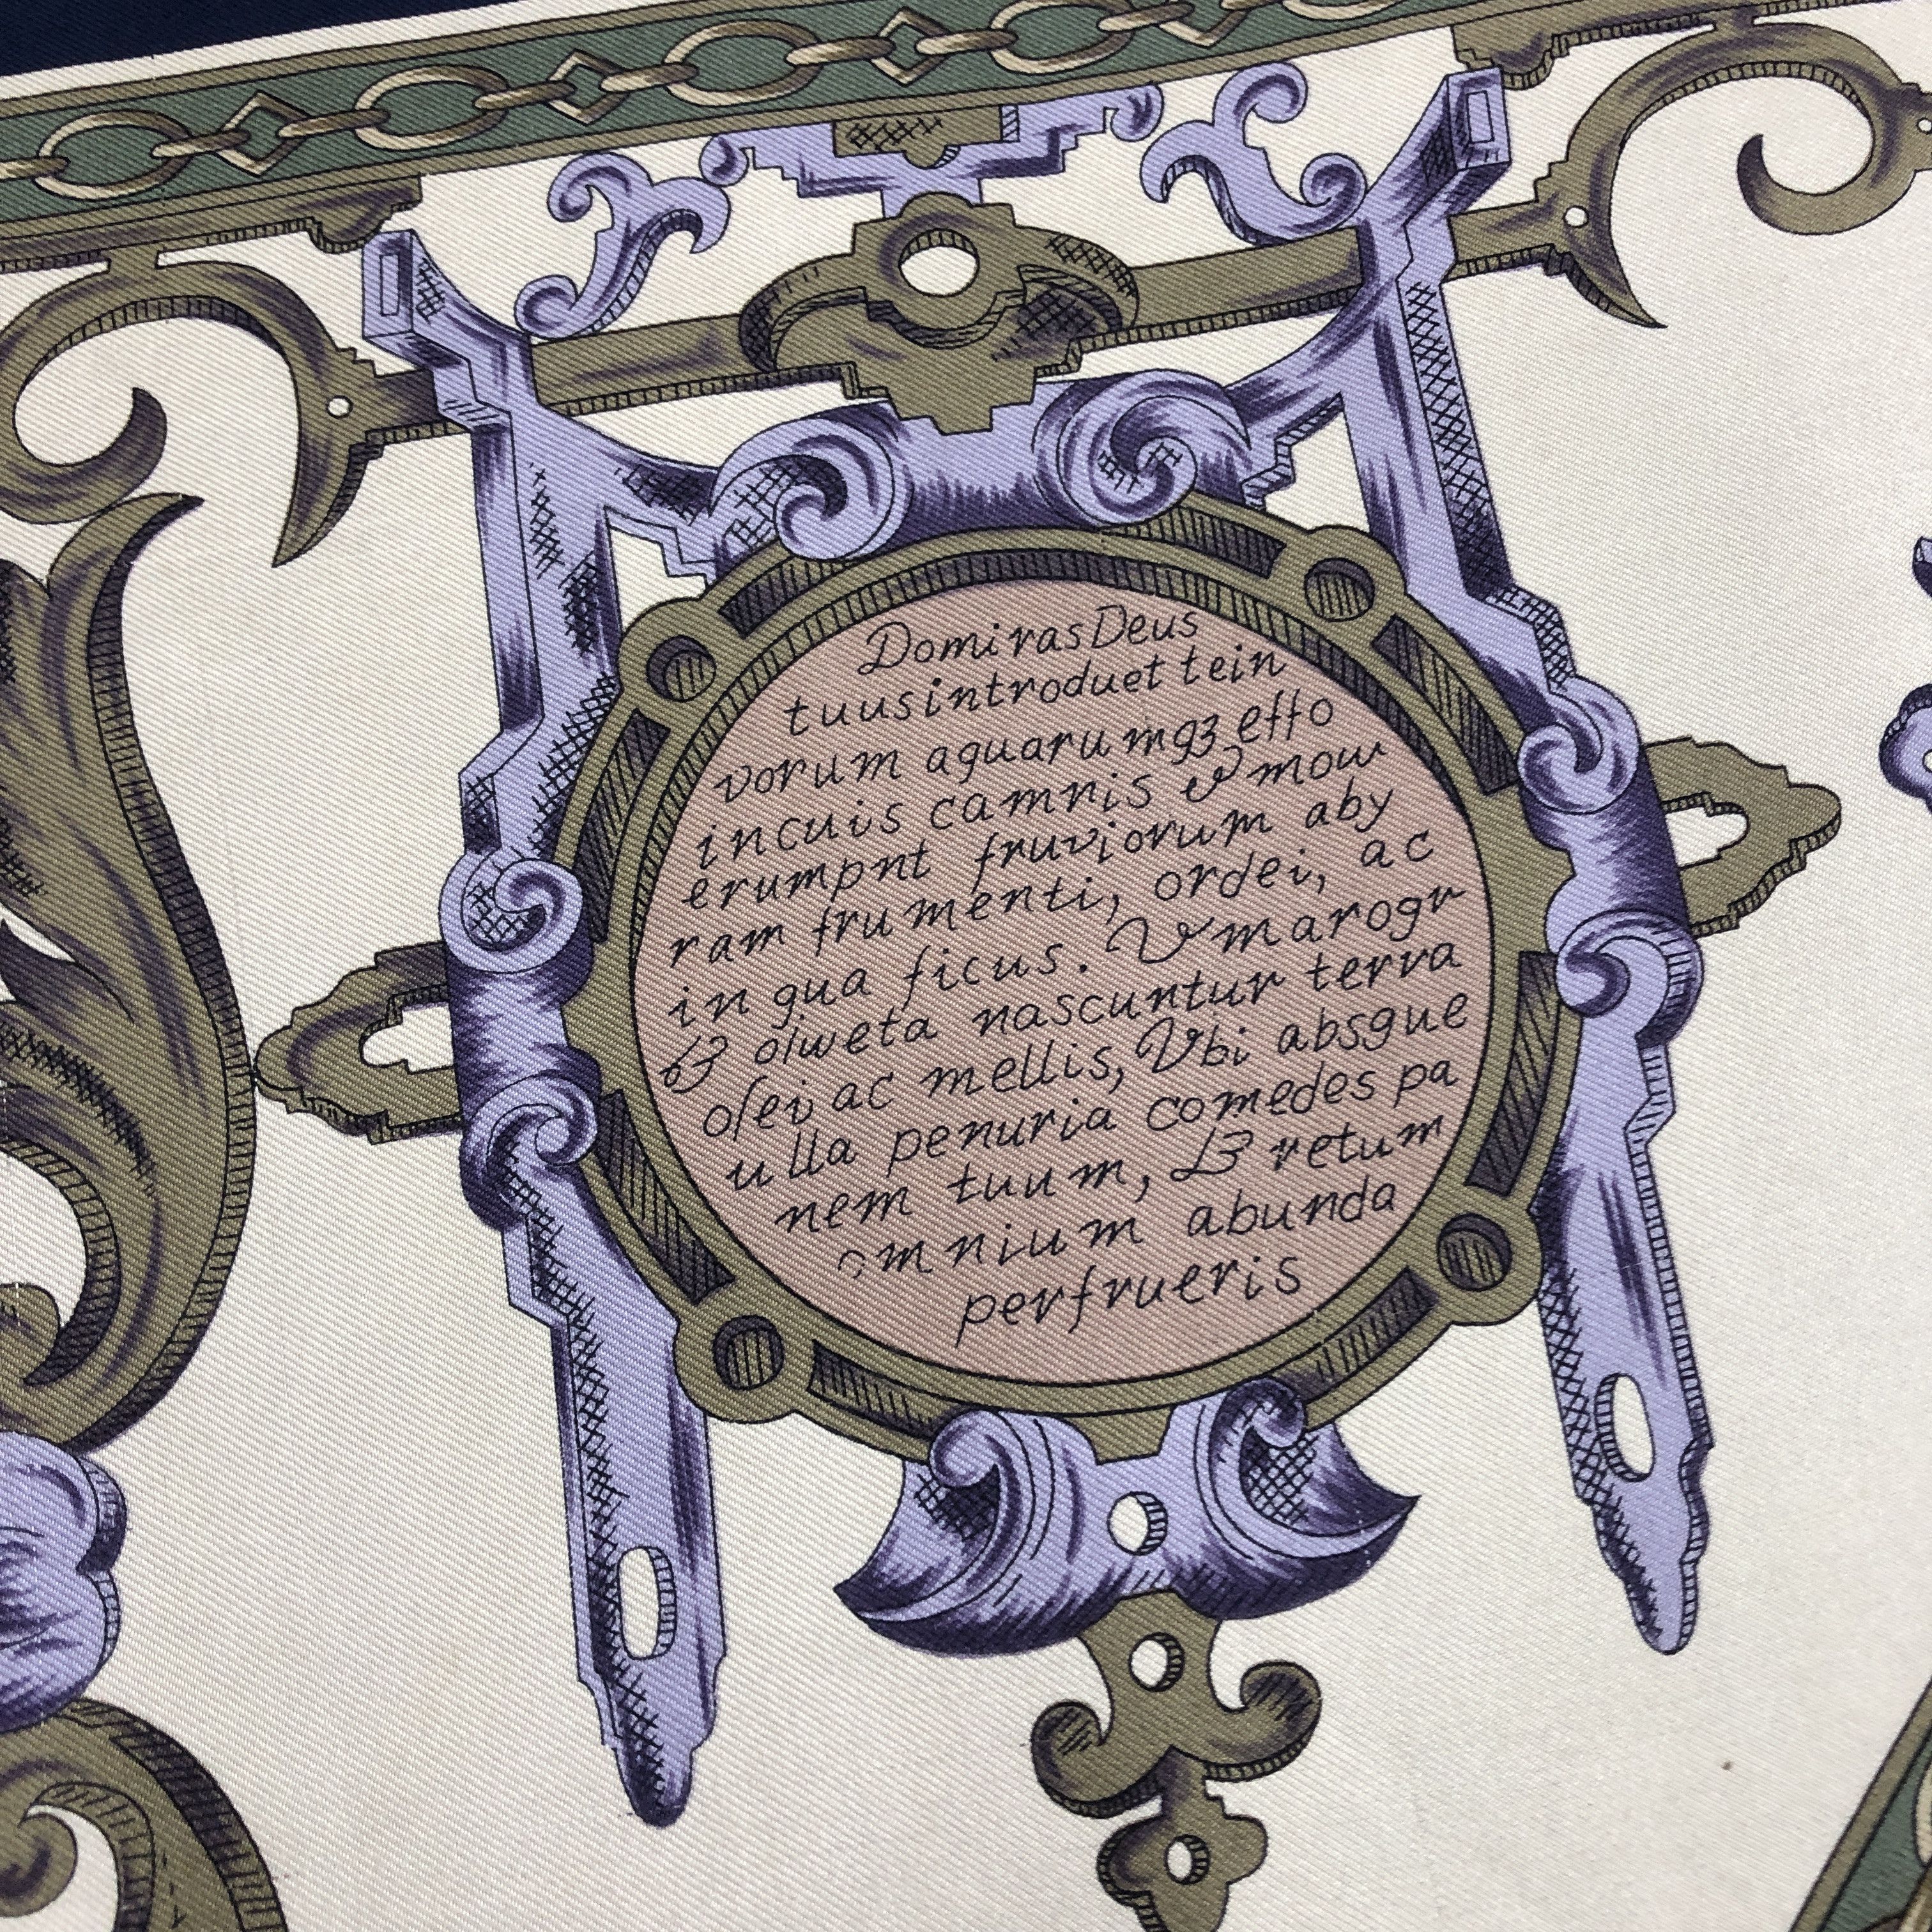 Domiras Deus
tuusintroduet tein
vorum aguarumqȝ effo
incuis camnis & mow
erumpnt fruviorum aby
ram frumenti, ordei, ac
in gua ficus. Vmarogr
& olweta nascuntur terra
olei, ac mellis, Vbi absgue
ulla penuria comedes pa
nem tuum, & retum
omnium abunda
perfrueris